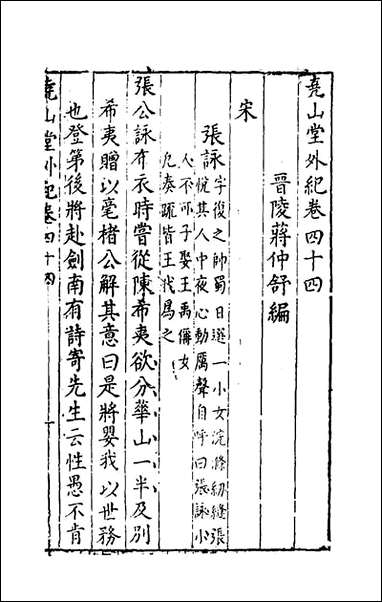 堯山堂外紀卷四十四
晉陵蔣仲舒編
宋
張詠字復之帥蜀日選一小女浣滌紉縫張
悅其人中夜心動厲聲自呼曰張詠小
人不可不可子娶王禹偁女
凡奏疏皆王代爲之
張公詠布衣時嘗從陳希夷欲分華山一半及別
希夷贈以毫楮公解其意曰是將嬰我以世務
也登第後將赴劍南有詩寄先生云性愚不肯
堯山堂外紀卷四十四 一